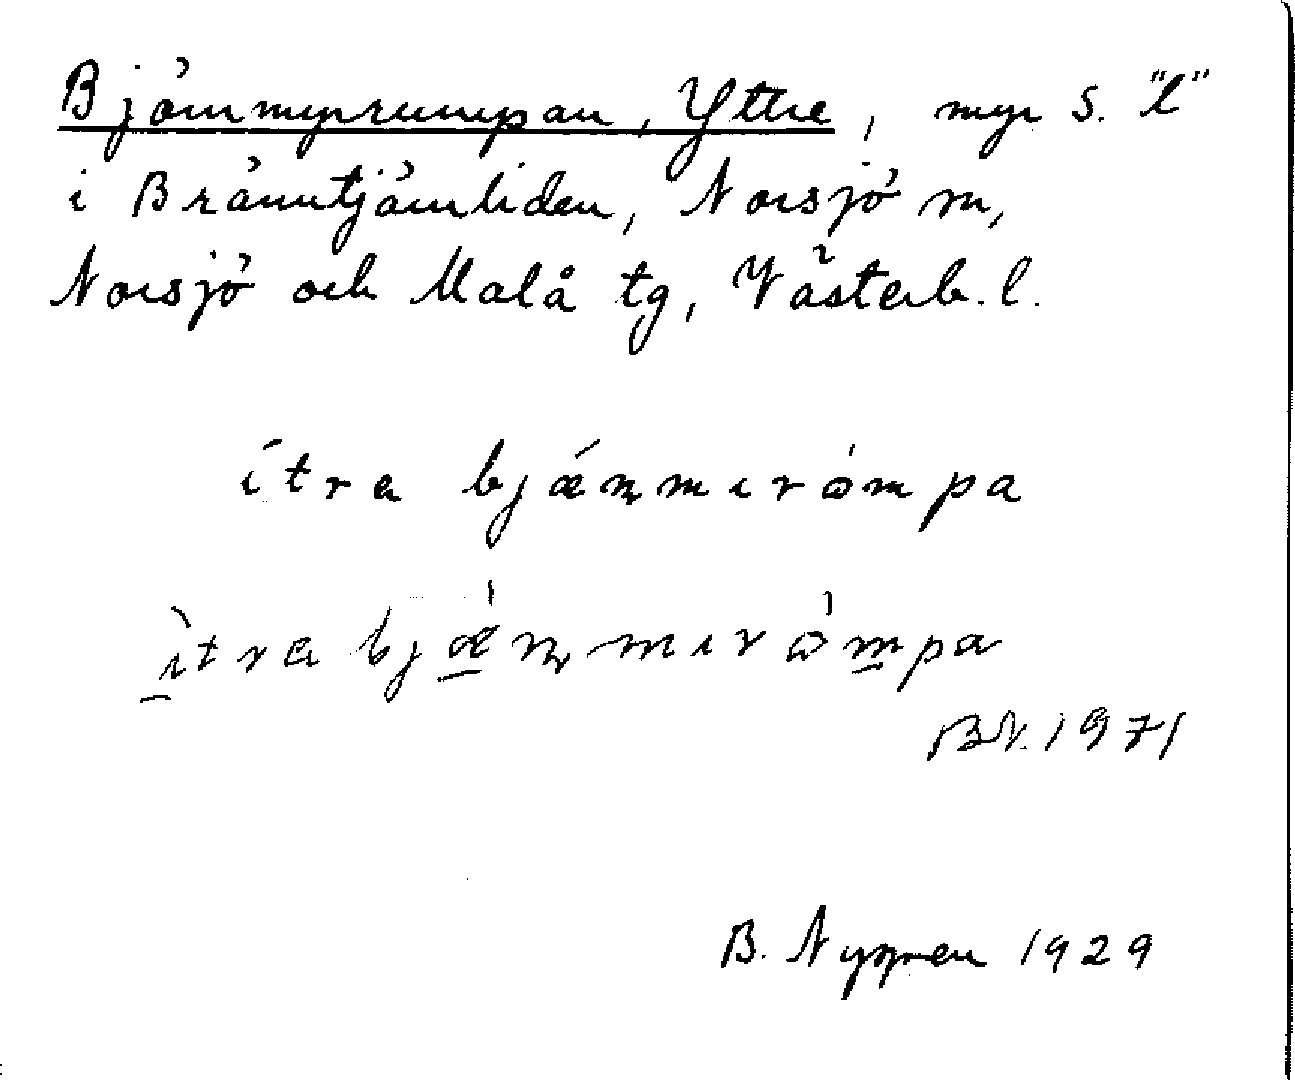 Björnmyrrumpan, Yttre, myr S. "l"
i Bränntjärnliden, Norsjö sn,
Norsjö och Malå tg, Västerb. l.
ítra bjǽɳmırómpa
ìtra bjæ̲ɳmıròm̲pa
BN. 1971
B. Nygren 1929